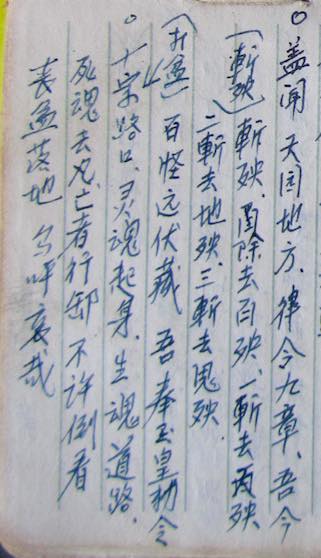 ○盖闻 天园地方、律令九章、吾今
(斩殃)斩殃、除去百殃、一斩去丙殃
二斩去地殃、三斩去鬼殃
(打盆)百怪远伏藏 吾奉玉皇勅令
○十字路口、灵魂起身、生魂道路、
死魂去凡、亡者行 不许倒看
丧盆落地 乌呼哀哉